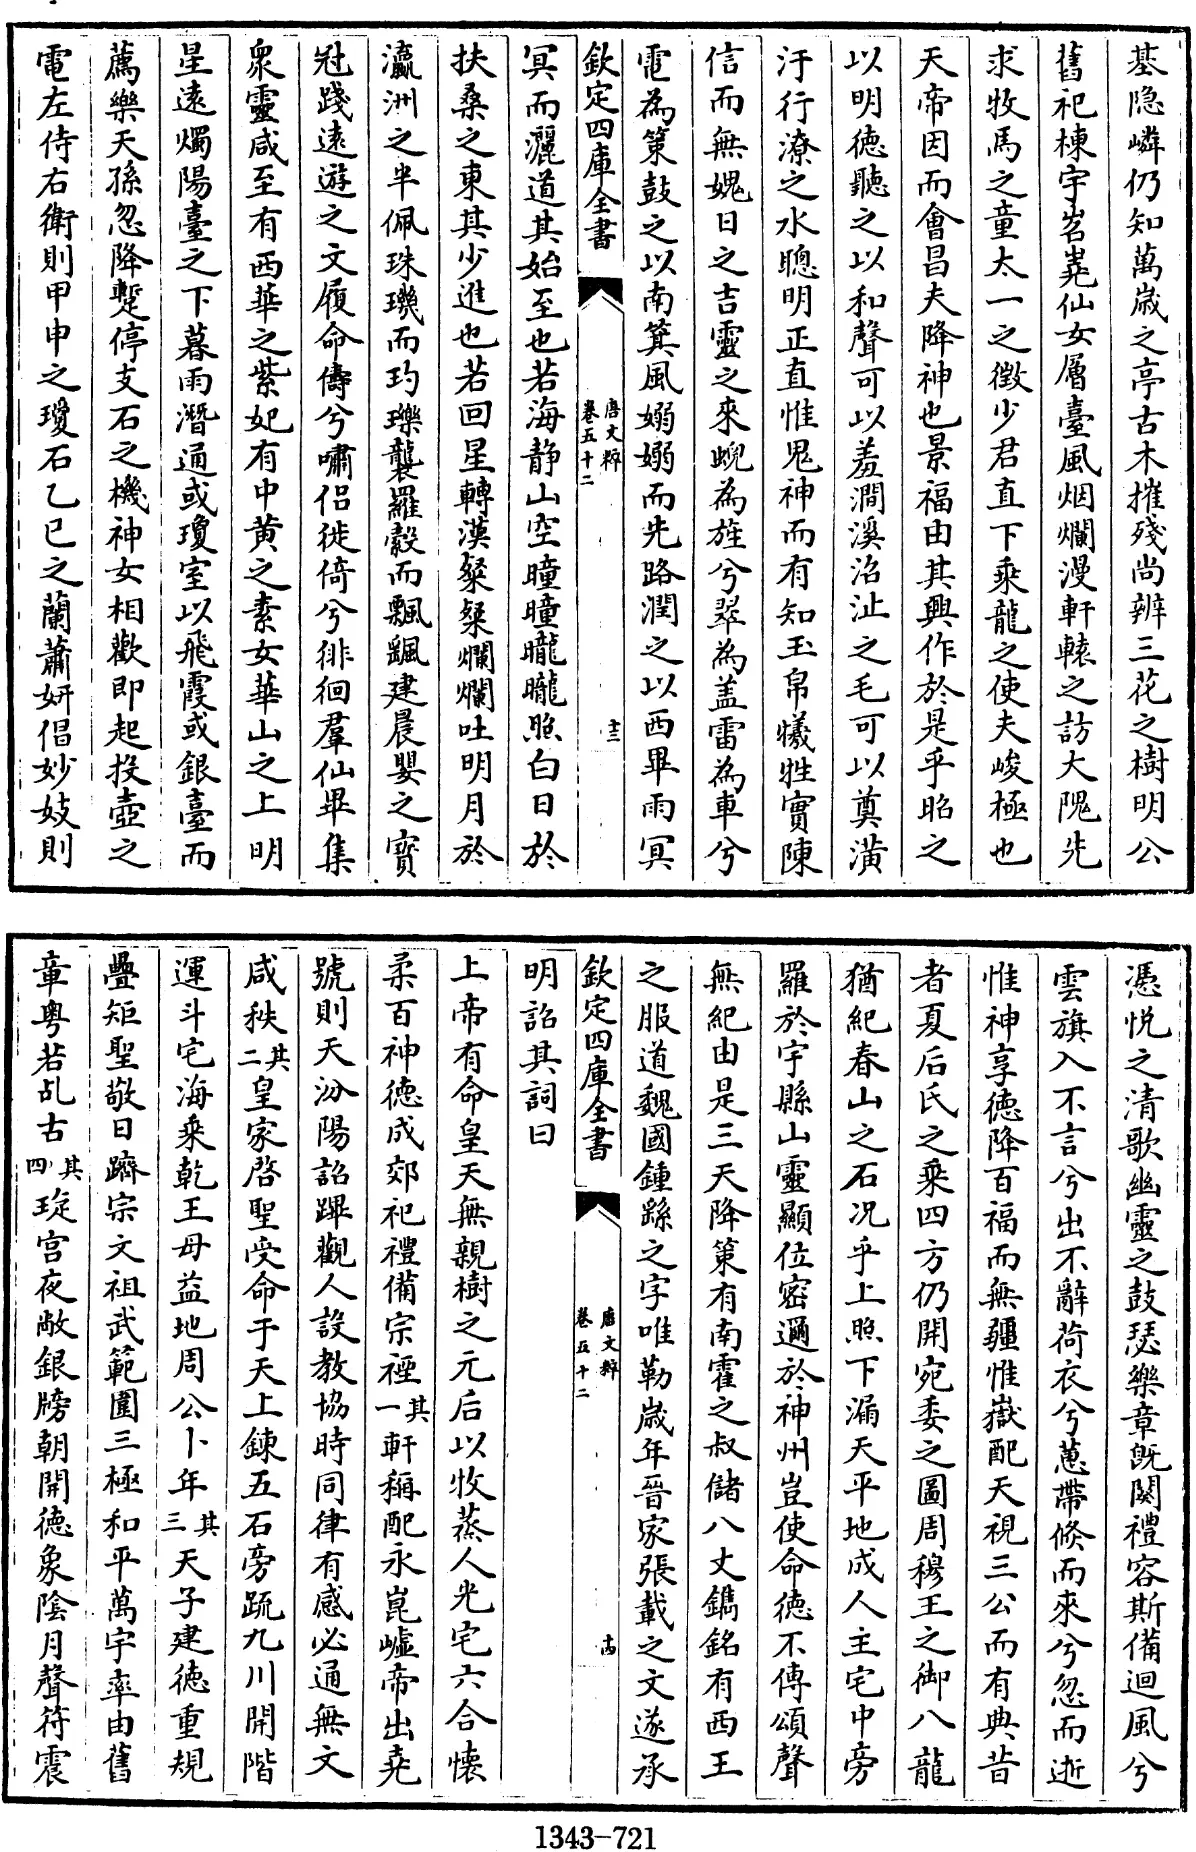 基隐嶙仍知萬歳之亭古木摧殘尚辨三花之樹明公
舊祀棟宇岧嶤仙女層臺風烟爛漫軒轅之訪大隗先
求牧馬之童太一之徵少君直下乘龍之使夫峻極也
天帝因而會昌夫降神也景福由其興作於是乎昭之
以明德聽之以和聲可以羞澗溪沼沚之毛可以奠潢
汙行潦之水聰明正直惟鬼神而有知玉帛犧牲實陳
信而無媿日之吉靈之來蜺為旌兮翠為盖雷為車兮
電為策鼓之以南箕風嫋嫋而先路潤之以西畢雨冥
欽定四庫全書
唐文粹
卷五十二
十三
冥而灑道其始至也若海静山空曈曈曨曨照白日於
扶桑之東其少進也若回星轉漢粲粲爛爛吐明月於
瀛洲之半佩珠璣而玓瓅襲羅縠而飄颻建晨嬰之寳
冠踐逺遊之文履命儔兮嘯侣徙倚兮徘徊羣仙畢集
衆靈咸至有西華之紫妃有中黄之素女華山之上明
星逺燭陽臺之下暮雨潛通或瓊室以飛霞或銀臺而
薦樂天孫忽降蹔停支石之機神女相歡即起投壺之
電左侍右衛則甲申之瓊石乙巳之蘭蕭妍倡妙妓則
憑悦之清歌幽靈之鼓瑟樂章旣闋禮容斯備迴風兮
雲旗入不言兮出不辭荷衣兮蕙帶倐而來兮忽而逝
惟神享徳降百福而無疆惟嶽配天視三公而有典昔
者夏后氏之乘四方仍開宛委之圖周穆王之御八龍
猶紀春山之石况乎上照下漏天平地成人主宅中旁
羅於宇縣山靈顯位密邇於神州豈使命德不傳頌聲
無紀由是三天降策有南霍之叔儲八丈鐫銘有西王
之服道魏國鍾繇之字唯勒歳年晉家張載之文遂承
欽定四庫全書
唐文粹
卷五十二
十四
明詔其詞曰
上帝有命皇天無親樹之元后以牧蒸人光宅六合懐
柔百神徳成郊祀禮備宗禋其一軒稱配永崑嶇帝出堯
號則天汾陽詔蹕觀人設教協時同律有感必通無文
咸秩其二皇家啓聖受命于天上鍊五石旁疏九川開階
運斗宅海乘乾王母益地周公卜年其三天子建徳重規
疊矩聖敬日躋宗文祖武範圍三極和平萬宇率由舊
章粤若乩古其四琁宫夜敞銀牓朝開德象陰月聲符震
1343-721